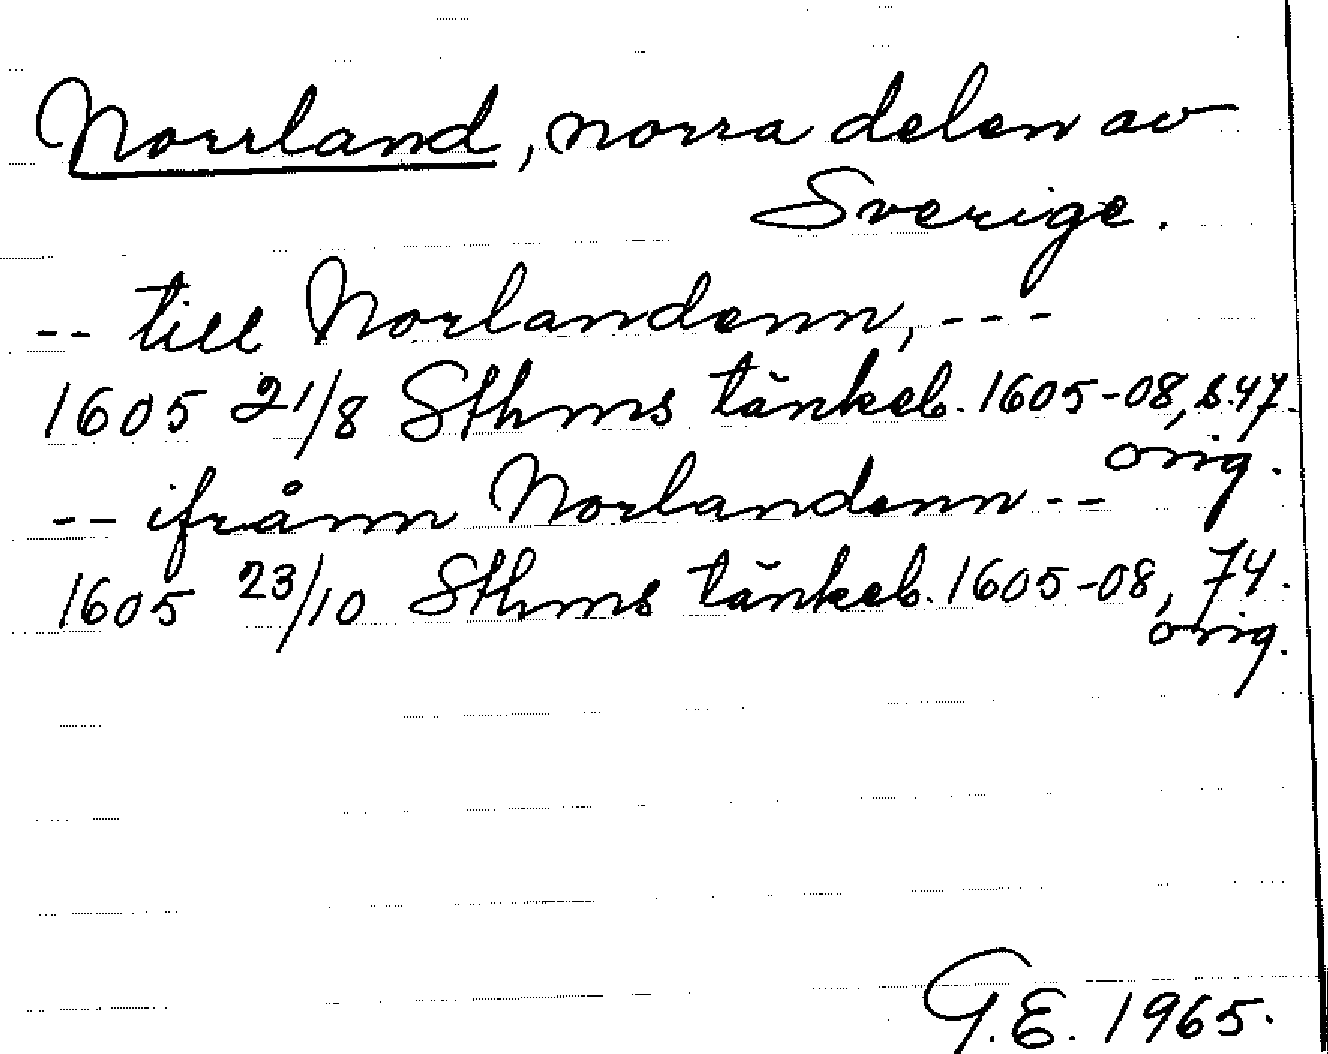 Norrland, norra delen av
Sverige.
-- till Norlandenn, ---
1605 21/8 Sthms tänkeb. 1605-08, s. 47.
orig.
-- ifrånn Norlandenn --
1605 23/10 Sthms tänkeb. 1605-08, 74.
orig.
G.E. 1965.